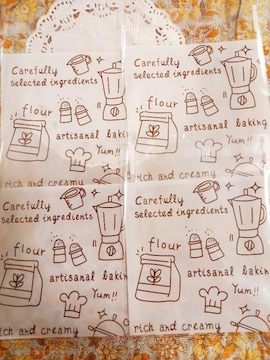 Carefully
selected ingredients
flour
artisanal baking
Yum!!
rich and creamy
Carefully
selected ingredients
flour
artisanal baking
Yum!!
rich and creamy
Carefully
selected ingredients
flour
artisanal baking
Yum!!
rich and creamy
Carefully
selected ingredients
flour
artisanal baking
Yum!!
rich and creamy